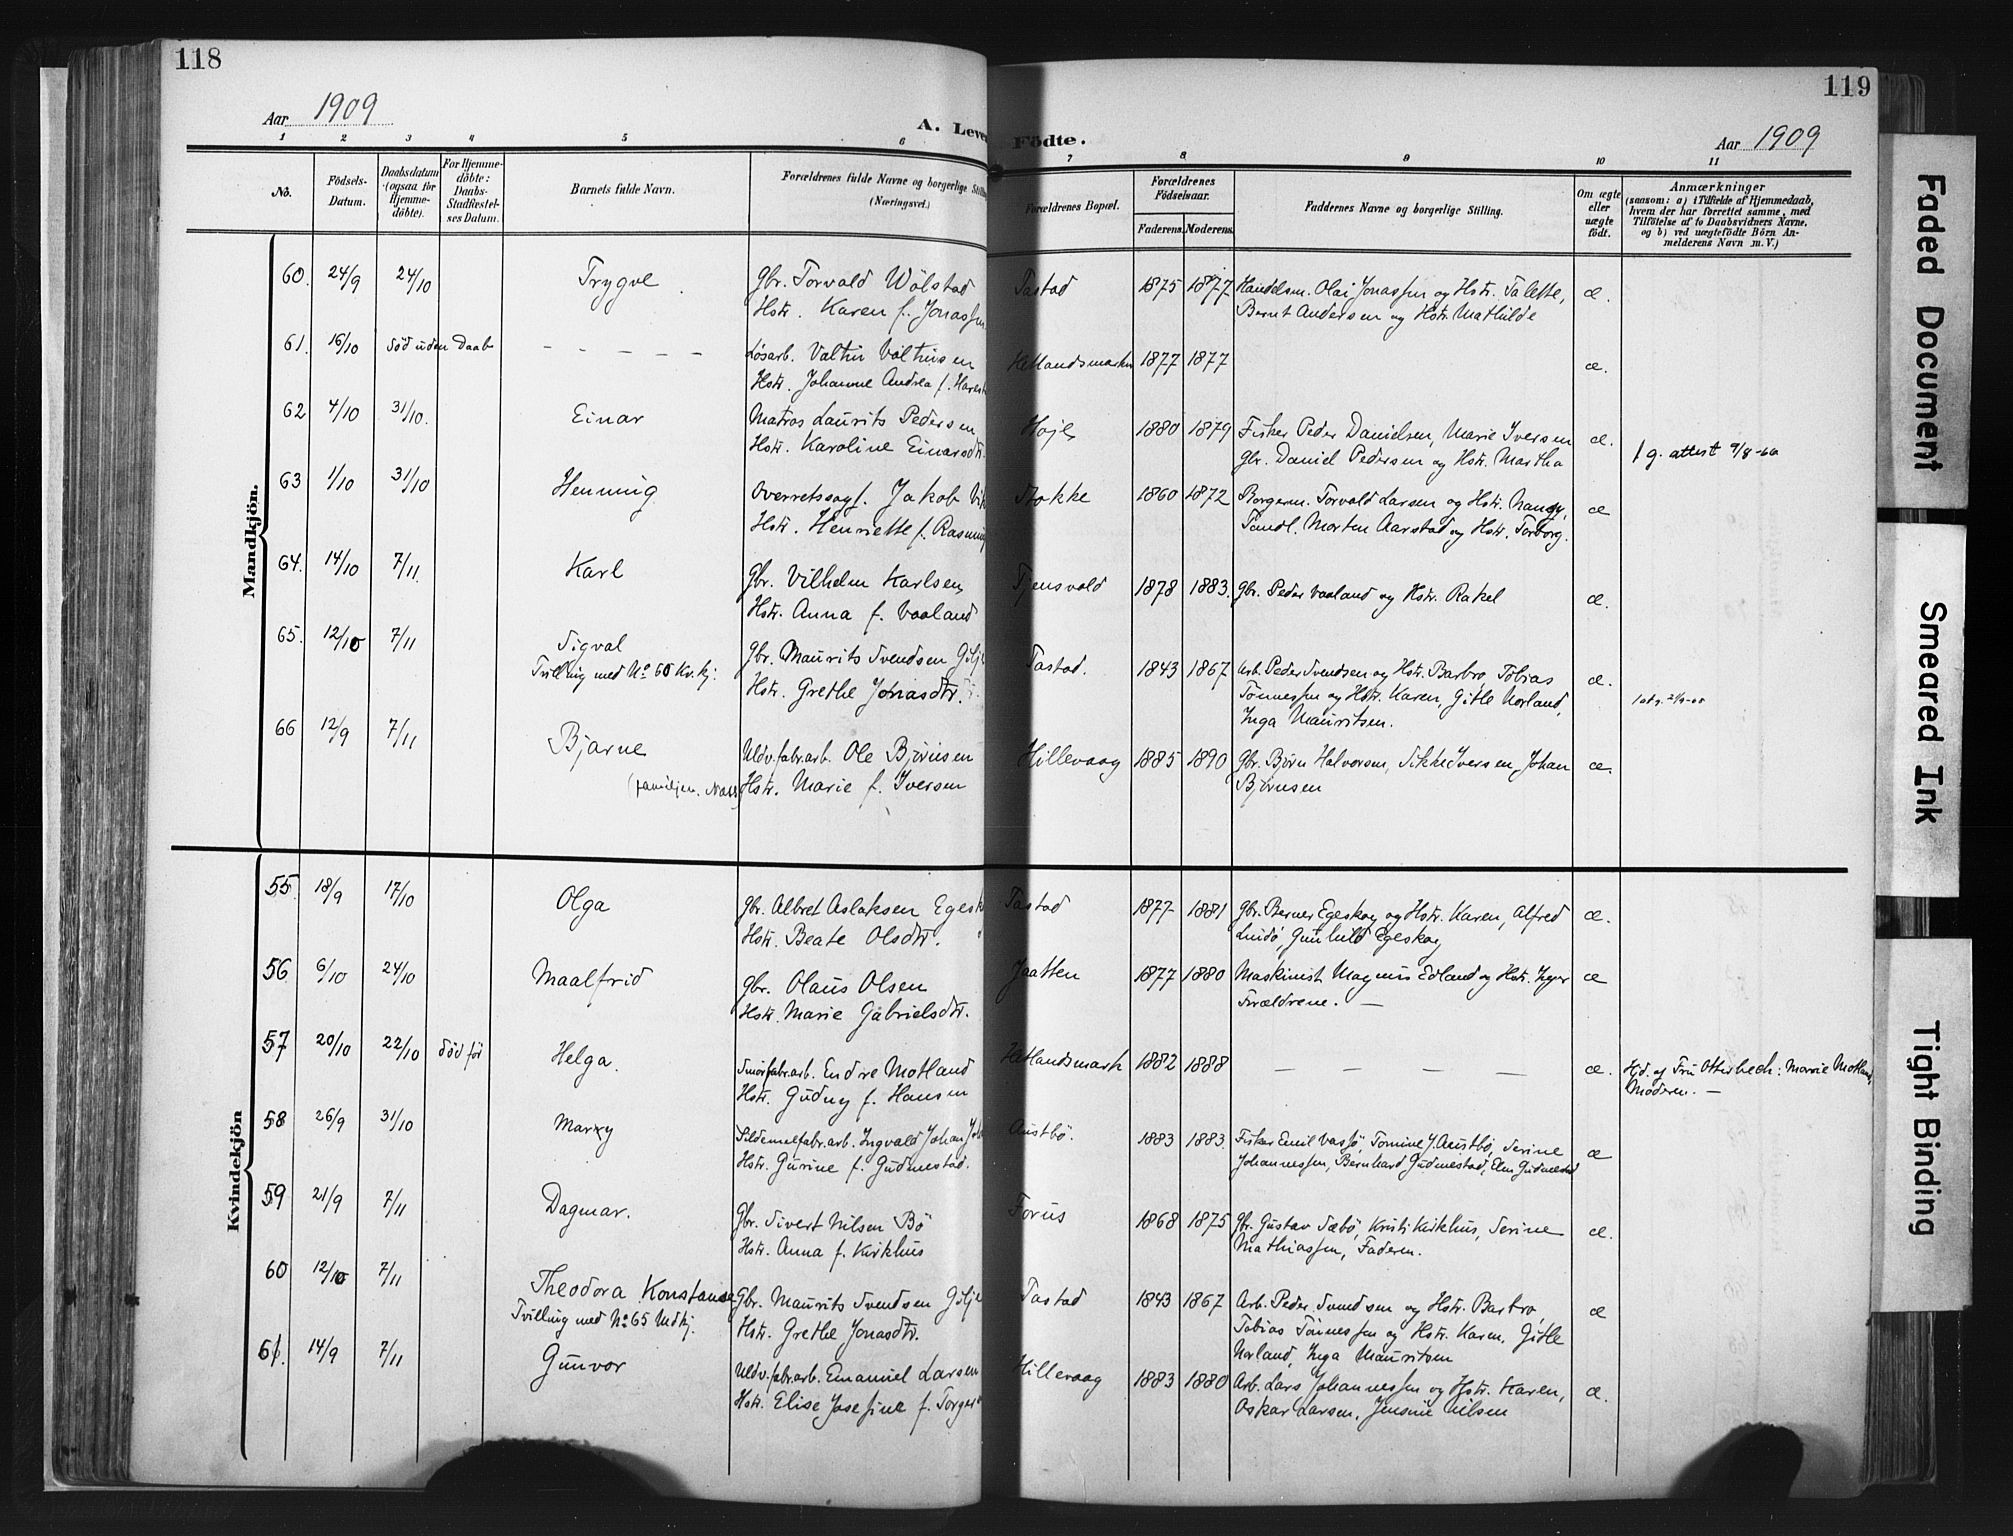 118
Aar 1909
A. Leve
1 2 3 4 5 6
No.
Födsels-Datum.
Daabsdatum (ogsaa for Hjemme-döbte).
For Hjemme-döbte: Daabs-Stadfæstel-ses Datum.
Barnets fulde Navn.
Forældrenes fulde Navne og borgerlige Stilling (Næringsvei.)
Mandkjön.
60. 24/9 24/10 Trygve Gbr. Torvald Wölstad
Hstr. Karen f. Jonassen
61. 16/10 död uden Daab - - - - - Løsarb. Valtin Valtinsen
Hstr. Johanne Andrea f.
62 4/10 31/10. Einar Matros Laurits Pedersen
Hstr. Karoline Einarsdtr.
63 1/10 31/10 Henning Overretssagf. Jakob
Hstr. Henriette f.
64. 14/10 7/11. Karl Gbr. Vilhelm Karlsen
Hstr. Anna f. Vaaland
65. 12/10 7/11 Sigval Gbr. Maurits Svendsen Gilje
Tvilling med No 60 Kv.kj. Hstr. Grethe Jonasdtr.
66 12/9 7/11 Bjarne Uldv.fabr.arb. Ole Björnsen
(familjen. Hstr. Marie f. Iversen
Kvindekjön
55. 18/9 17/10 Olga Gbr. Albret Aslaksen
Hstr. Beate Olsdtr.
56 6/10 24/10 Maalfrid Gbr. Olaus Olsen
Hstr. Marie Gabrielsdtr.
57 20/10 22/10 död før Helga. Smörfabr.arb. Endre Motland
Hstr. Gudny f. Hansen
58 26/9 31/10 Marry Sildemelfabr.arb. Ingvald Johan
Hstr. Gurine f. Gudmestad.
59 21/9 7/11 Dagmar. Gbr. Sivert Nilsen Bö
Hstr. Anna f. Kirkhus
60 12/10 7/11 Theodora Konstanse Gbr. Maurits Svendsen Gilje
Tvilling med No 65 Mdkj. Hstr. Grethe Jonasdtr.
61. 14/9 7/11 Gunvor Uldv.fabr.arb. Emanuel Larsen
Hstr. Elise Josefine f.
119
Födte.
Aar 1909
7 8 9 10 11
Forældrenes Bopæl.
Forældrenes Födselsaar.
Faderens. Moderens.
Faddernes Navne og borgerlige Stilling.
Om ægte eller uægte födt.
Anmærkninger
(saasom: a) i Tilfælde af Hjemmedaab,
hvem der har forrettet samme, med
Tilföielse af to Daabsvidners Navne,
og b) ved uægtefödte Börn An-
melderens Navn m. V.)
Tastad 1875 1877 Handelsm. Olai Jonassen og Hstr. Talette, æ.
Bernt Andersen og Hstr. Mathilde
Hetlandsmarken 1877 1877 æ.
1880 1879 Fisker Peder Danielsen, Marie Iversen æ.
Gbr. Daniel Pedersen og Hstr. Martha
1 g. attest 9/8-60
Stokke 1860 1872 Borgerm. Torvald Larsen og Hstr. Nancy, æ
Tandl. Morten Aarstad og Hstr. Torborg.
Tjensvold 1878 1883. Gbr. Peder Vaaland og Hstr. Rakel æ.
Tastad. 1843 1867 Arb. Peder Svendsen og Hstr. Barbro Tobias æ.
Tönnessen og Hstr. Karen, Gitle Norland,
Inga Mauritsen.
Hillevaag 1885 1890 Gbr. Björn Halvorsen, Sikke Iversen, Johan æ.
Björnsen
Tastad 1877 1881 Gbr. Berner Egeskog og Hstr. Karen, Alfred æ.
Lindö, Gunhild Egeskog
Jaatten 1877 1880 Maskinist Magnus Edland og Hstr. Inger æ
Forældrene. —
Hetlandsmark 1882 1888 — — — — æ. Hjd. af Fru Otterbech: Marie Motland,
Moderen. —
Austbö. 1883 1883. Fisker Emil Vassö, Tomine J. Austbö, Serine æ
Johannessen, Bernhard Gudmestad, Elen Gudmestad
Forus 1868 1875 Gbr. Gustav Sæbö, Kristi Kirkhus, Serine æ.
Mathiassen, Faderen.
Tastad 1843 1867 Arb. Peder Svendsen og Hstr. Barbro æ
Tobias Tönnessen og Hstr. Karen, Gitle
Norland, Inga Mauritsen
Hillevaag 1883 1880 Arb. Lars Johannessen og Hstr. Karen, æ.
Oskar Larsen, Jensine Nilsen
Faded Document
Smeared Ink
Tight Binding